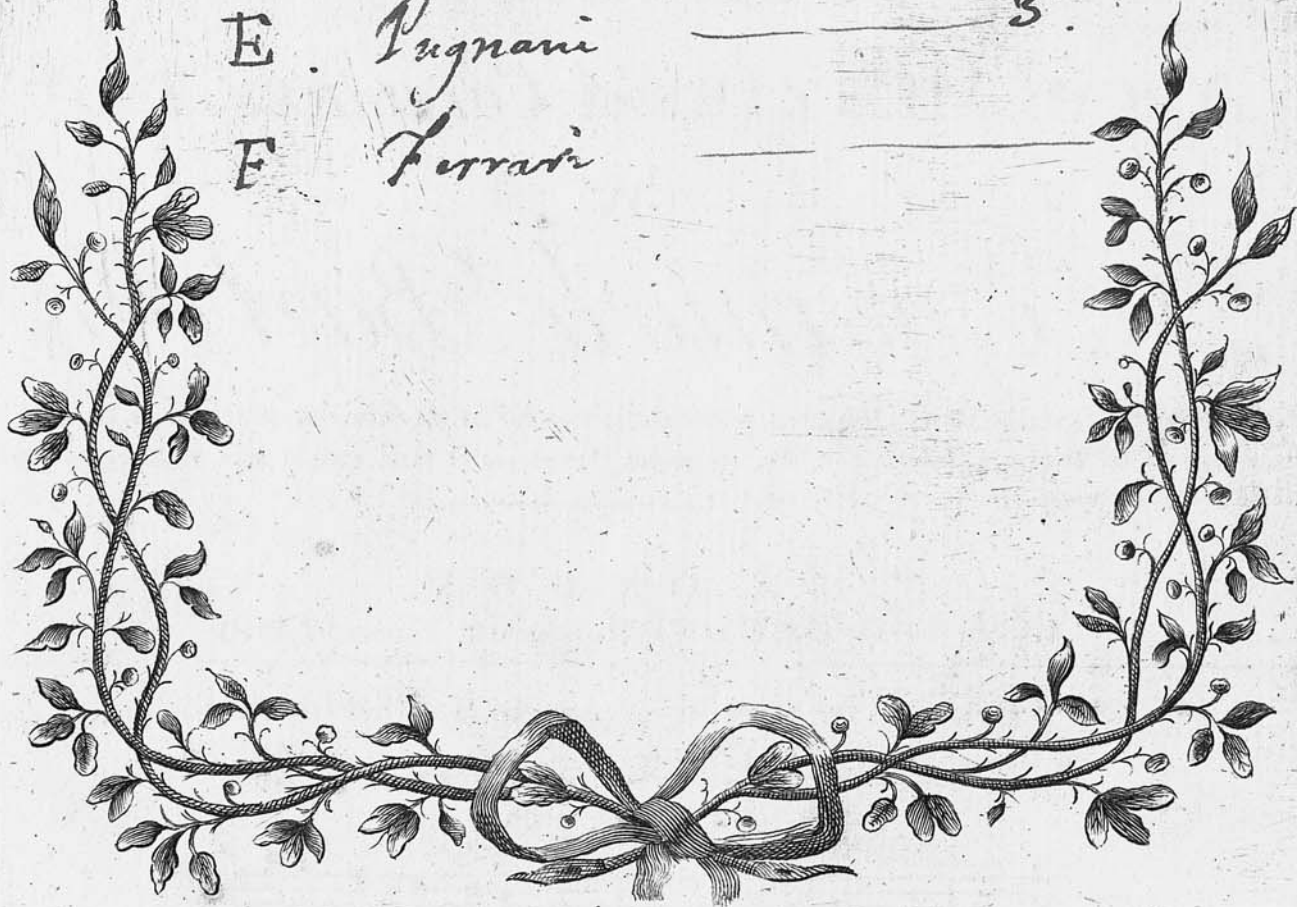 E. Pugnani 3.
F Ferrari